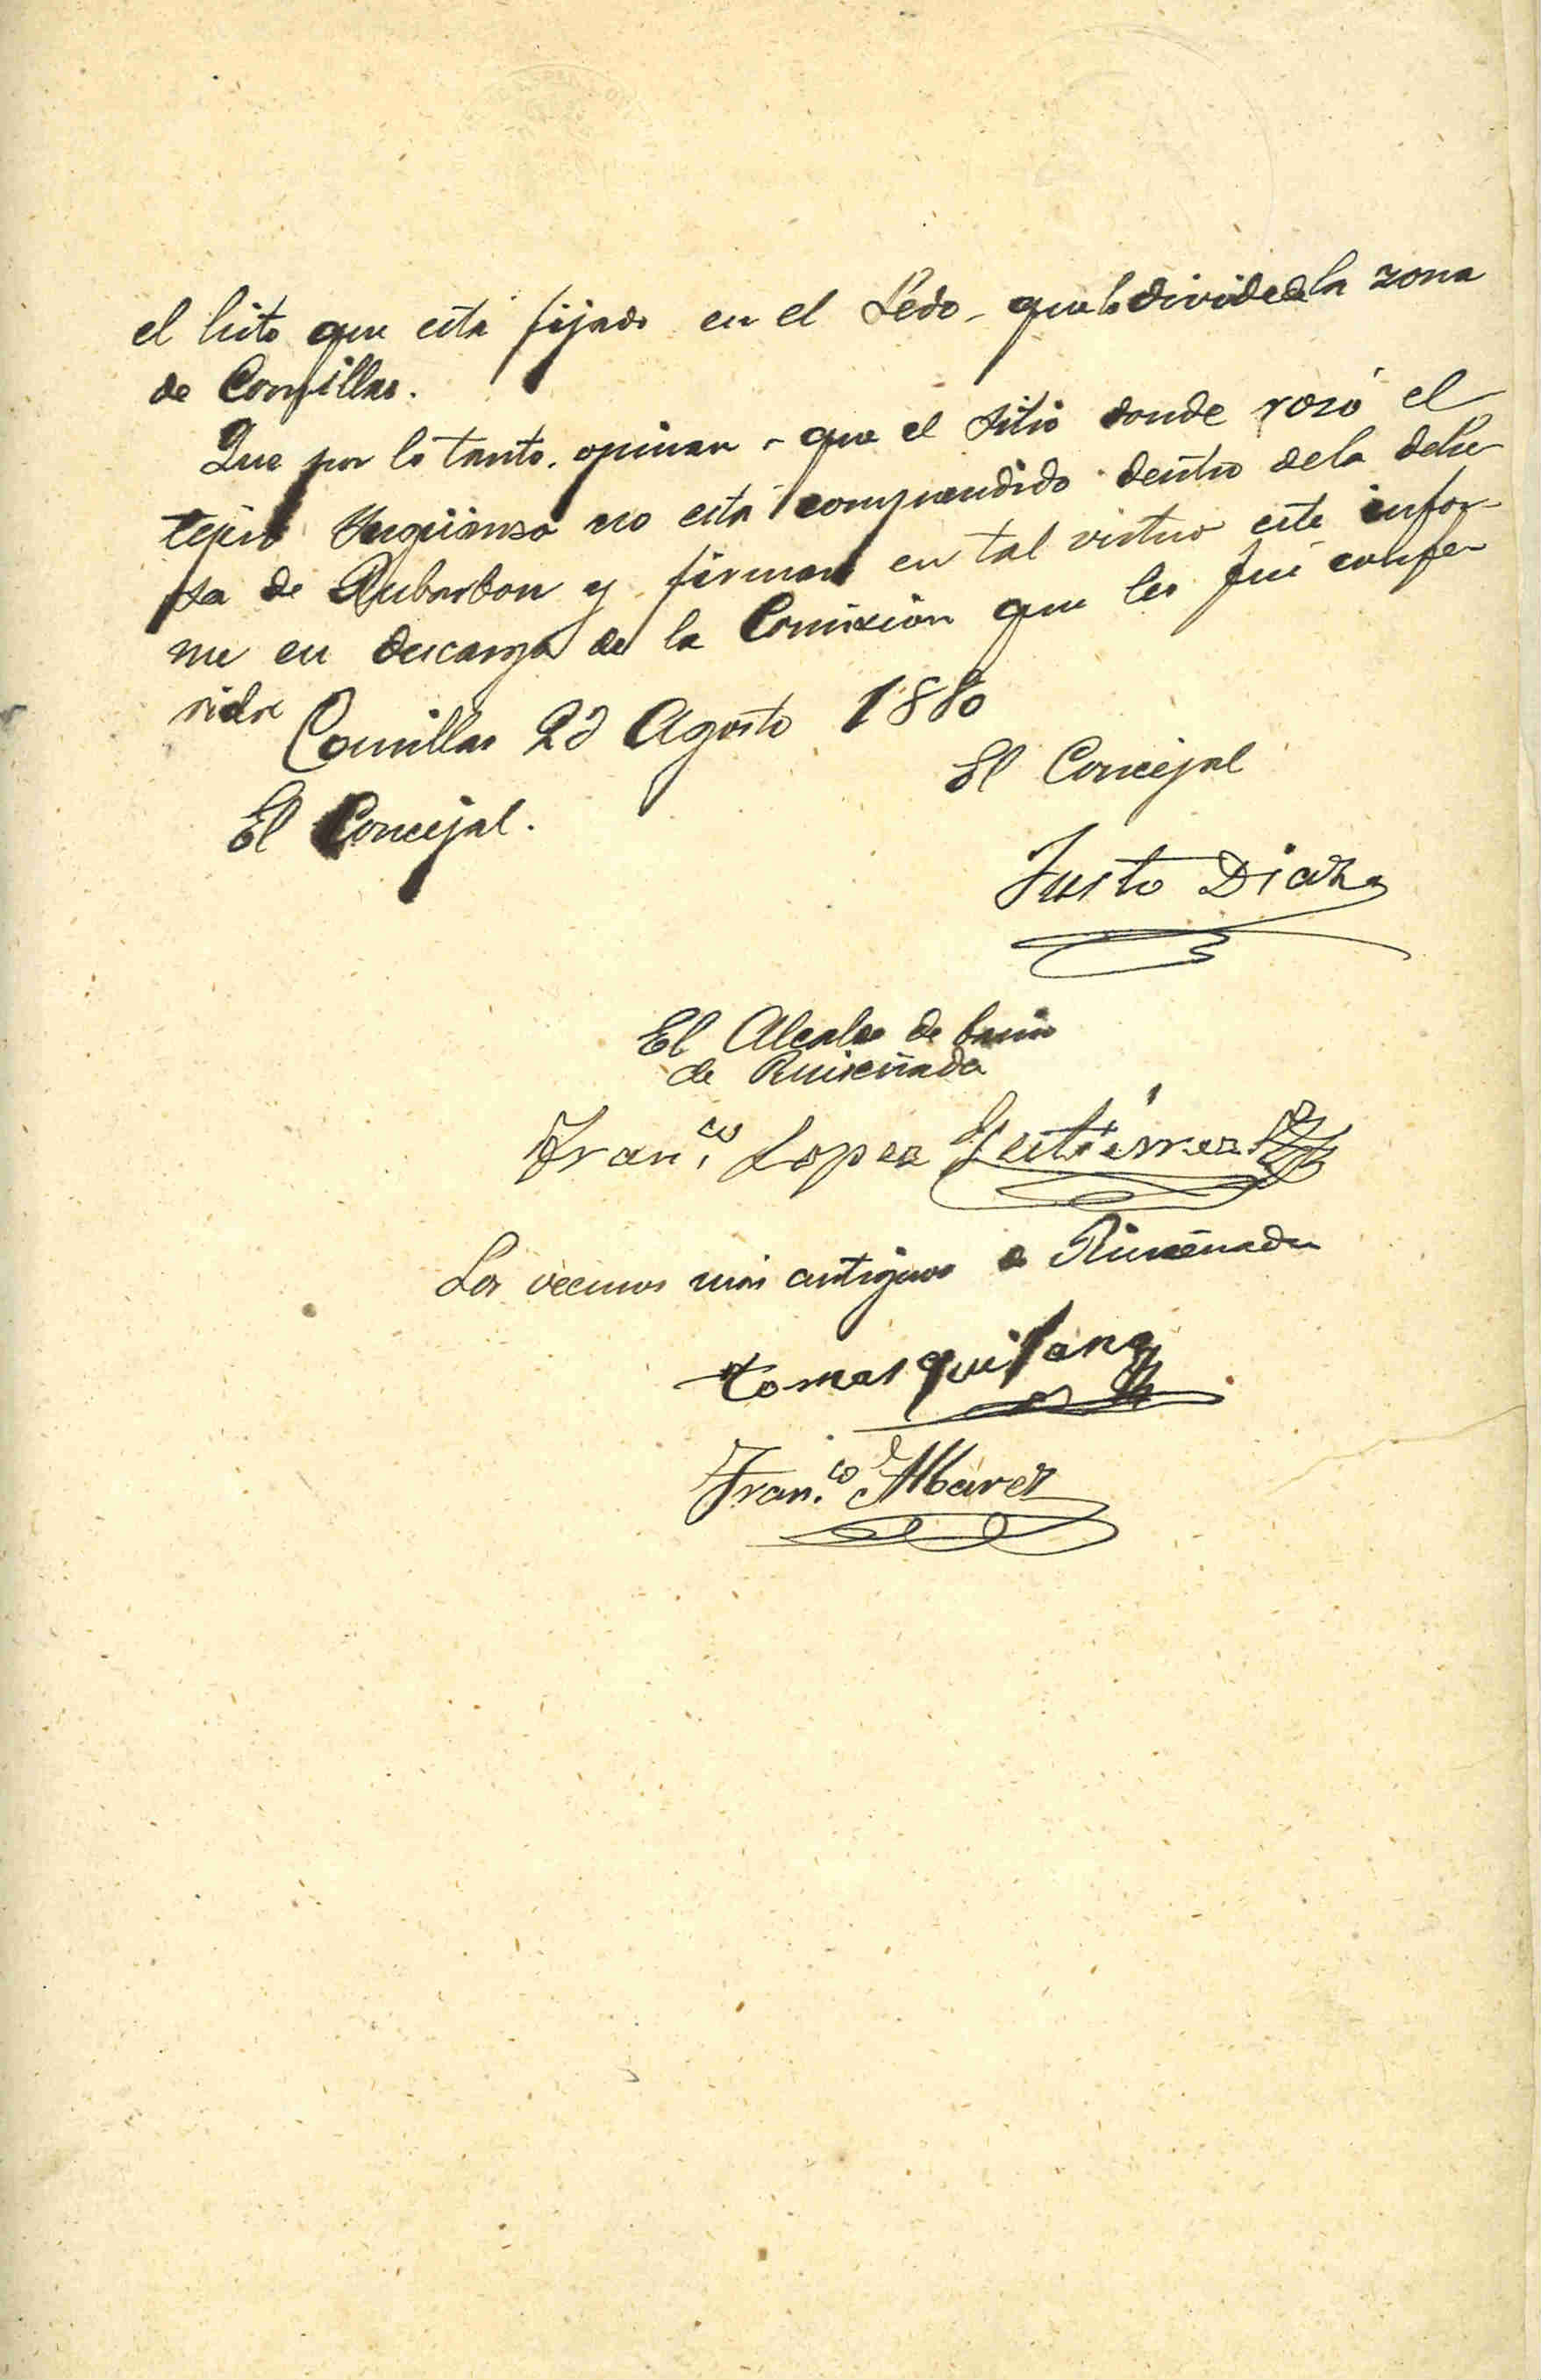 el hito que está fijado en el Ledo, que lo divide de la zona
de Comillas.
Que por lo tanto, opinan, que el sitio donde rozó el
tejero no está comprendido dentro dela dehe
sa de Rubarbon y firman en tal virtud este infor-
me en descargo de la Comisión que les fué confe-
rida
Comillas 23 Agosto 1880
El Concejal
El Concejal.
Justo Diaz
El Alcalde de barrio
de Ruiseñada
Fran.co Lopez Gutierrez
Los vecinos más antiguos de Ruiseñada
tomas quijano
Fran.co Albarez